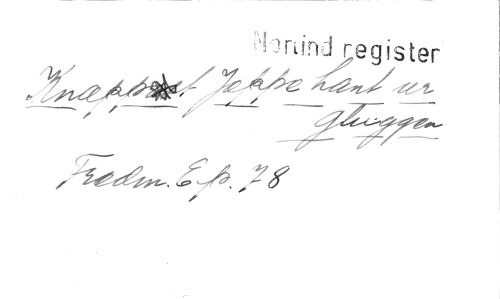 Norlind register
Knappast Jeppe hant ur
gluggen
Fredm. Ep. 78